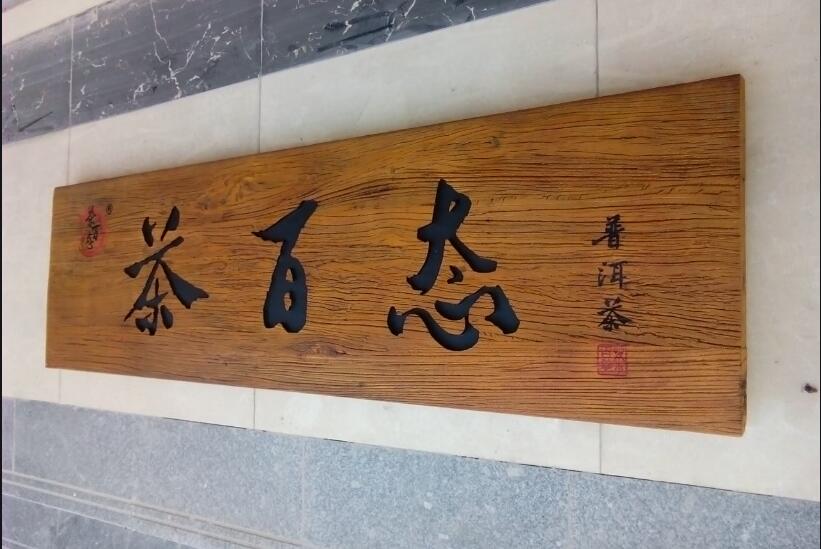 茶百态
普洱茶